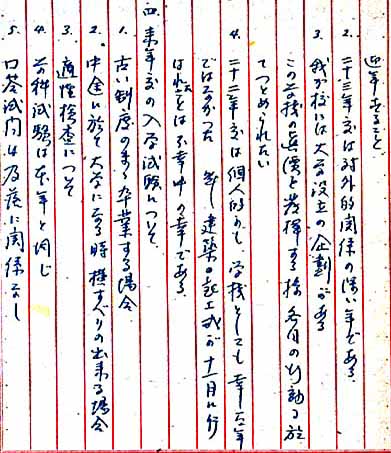 迎年すること
2. 二十三年度は対外的関係の深い年である
3. 我が校には大学設立の企劃がある
この学校の真価を発揮する様各自の行動に於
てつとめられたい
4. 二十二年度は個人的にも、学校としても幸な年
ではなかった 然し建築の起工式が十一月に行
はれたことは不幸中の幸である
四、来年度の入学試験について
1. 古い制度のまゝ卒業する場合
2. 中途に於て大学になる時横すべりの出来る場合
3. 適性検査について
4. 学科試験は本年と同じ
5. 口答試問は及落に関係なし